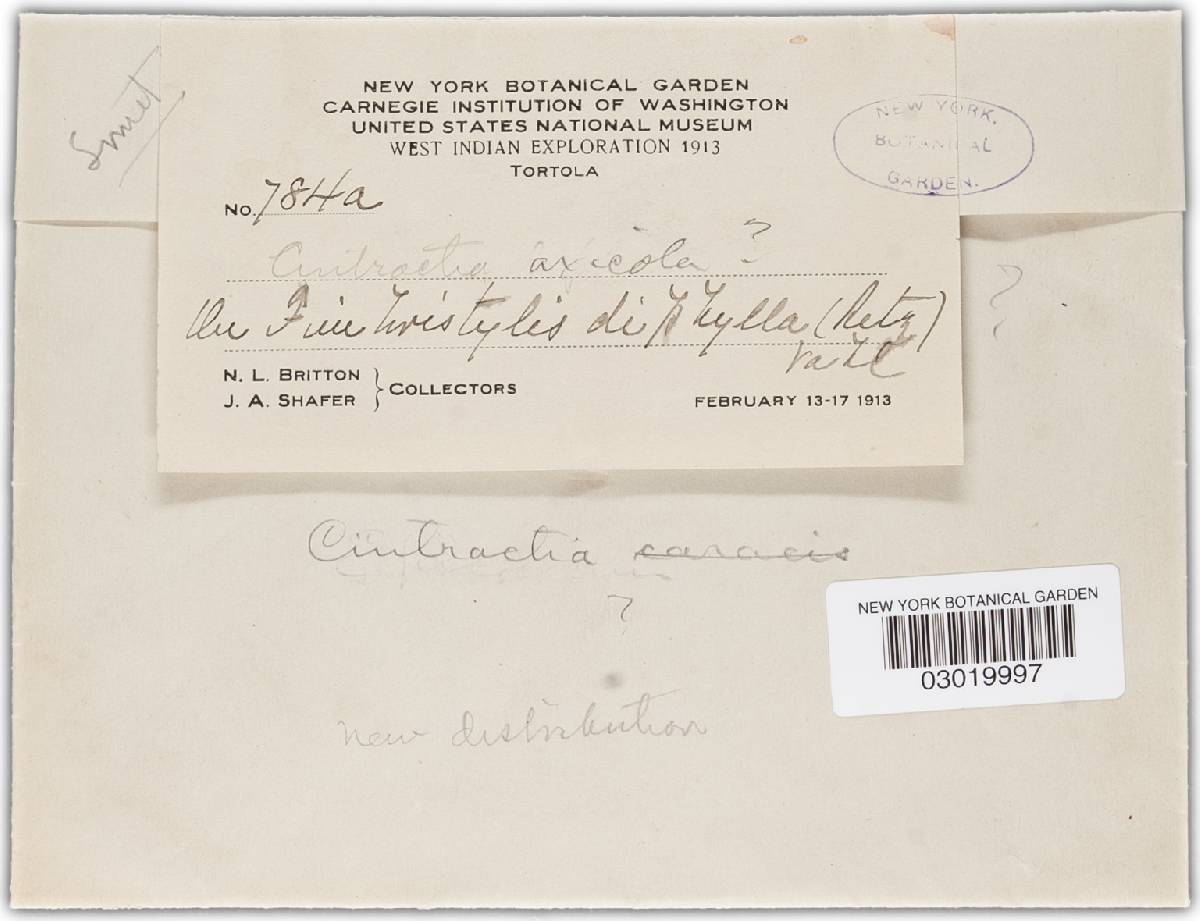 Smut
NEW YORK BOTANICAL GARDEN
CARNEGIE INSTITUTION OF WASHINGTON
UNITED STATES NATIONAL MUSEUM
WEST INDIAN EXPLORATION 1913
TORTOLA
NEW YORK.
BOTANICAL
GARDEN.
No. 784a
Cintractia axicola ?
On Fimbristylis diphylla (Retz)
Vahl
?
N. L. BRITTON
J. A. SHAFER } COLLECTORS
FEBRUARY 13-17 1913
Cintractia caracis
?
new distribution
NEW YORK BOTANICAL GARDEN
03019997